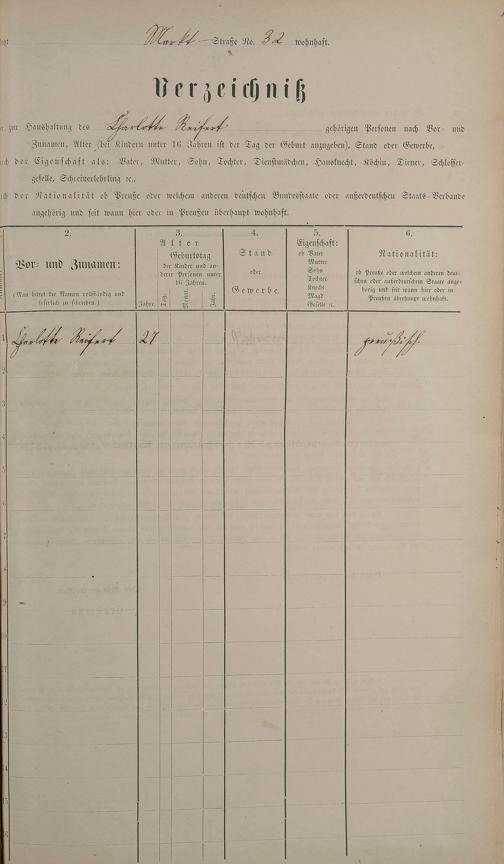 Markt-Straße No. 32 wohnhaft.
Verzeichniß
zur Haushaltung des Charlotte Reifert gehörigen Personen nach Vor- und
Zunamen, Alter (bei Kindern unter 16 Jahren ist der Tag der Geburt anzugeben), Stand oder Gewerbe,
der Eigenschaft als: Vater, Mutter, Sohn, Tochter, Dienstmädchen, Hausknecht, Köchin, Diener, Schlosser-
geselle, Schreinerlehrling ꝛc.,
der Nationalität ob Preuße oder welchem anderen deutschen Bundesstaate oder außerdeutschen Staats-Verbande
angehörig und seit wann hier oder in Preußen überhaupt wohnhaft.
2. 3. 4. 5. 6.
Vor- und Zunamen:
(Man bittet die Namen vollständig und
leserlich zu schreiben.)
Alter
Geburtstag
der Kinder und an-
derer Personen unter
16 Jahren.
Jahre. Tag. Monat. Jahr.
Stand
oder
Gewerbe.
Eigenschaft:
ob Vater
Mutter
Sohn
Tochter
Knecht
Magd
Geselle ꝛc.
Nationalität:
ob Preuße oder welchem anderen deut-
schen oder außerdeutschen Staate ange-
hörig und seit wann hier oder in
Preußen überhaupt wohnhaft.
1 Charlotte Reifert 27 preußisch.
2
3
4
5
6
7
8
9
10
11
12
13
14
15
16